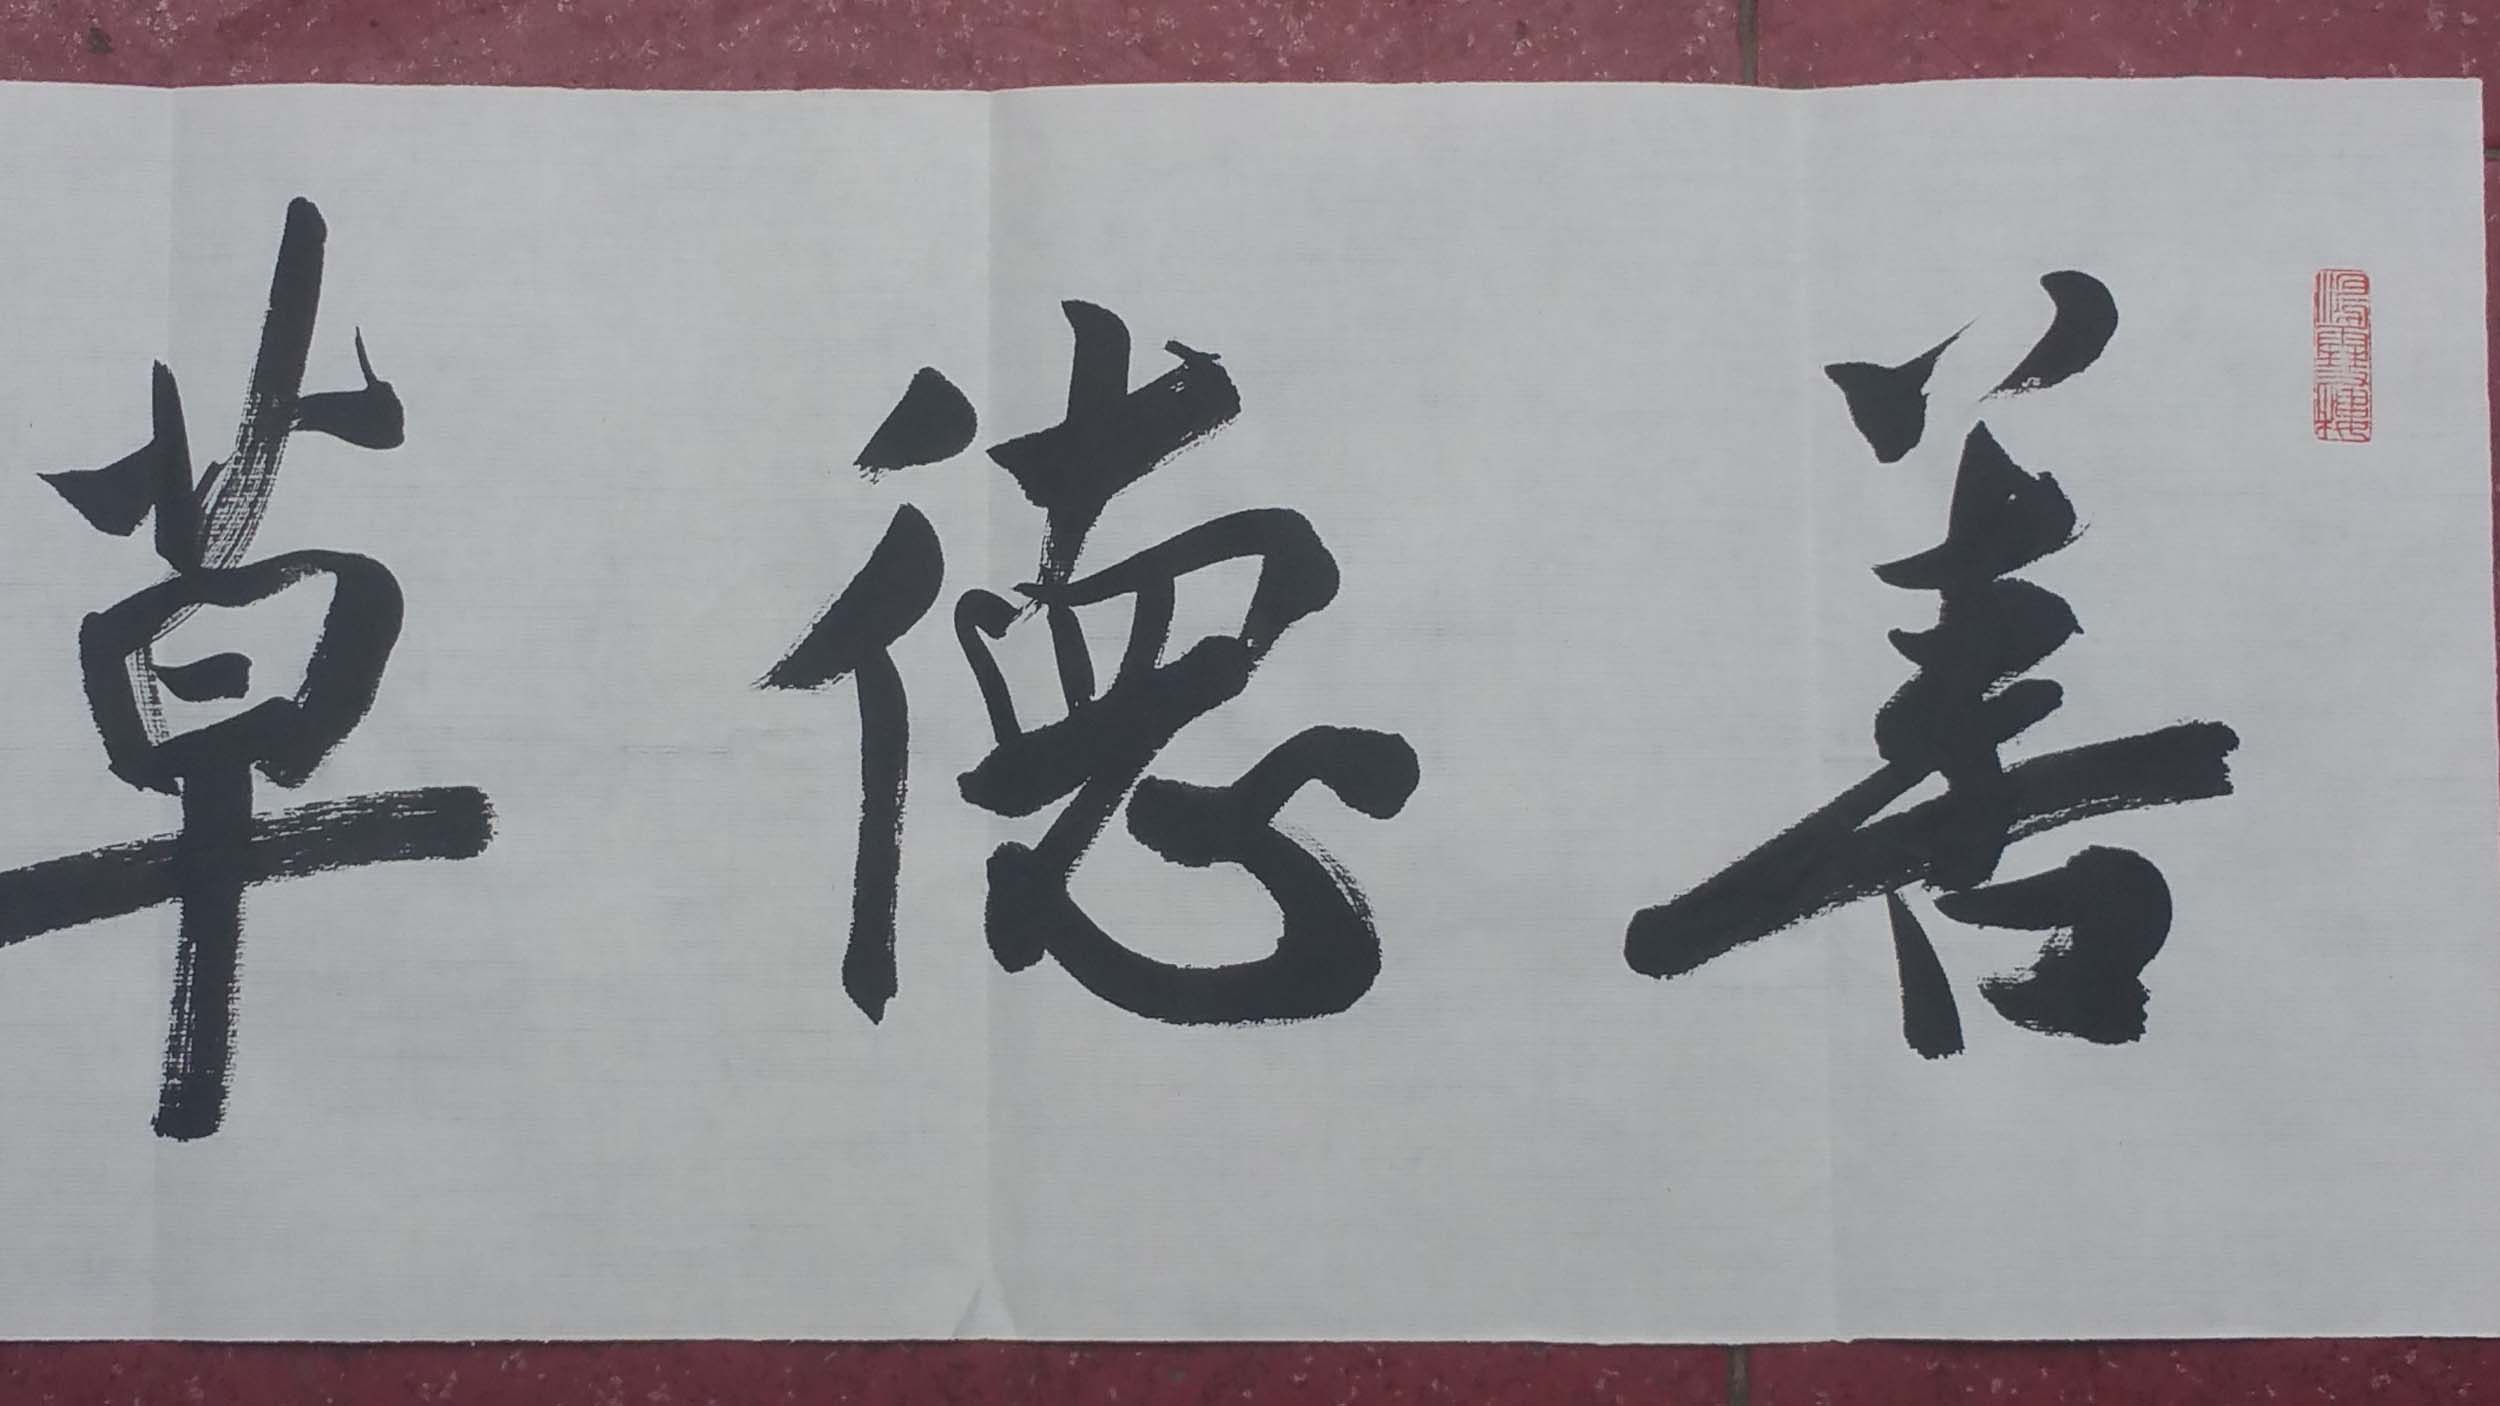 善德草